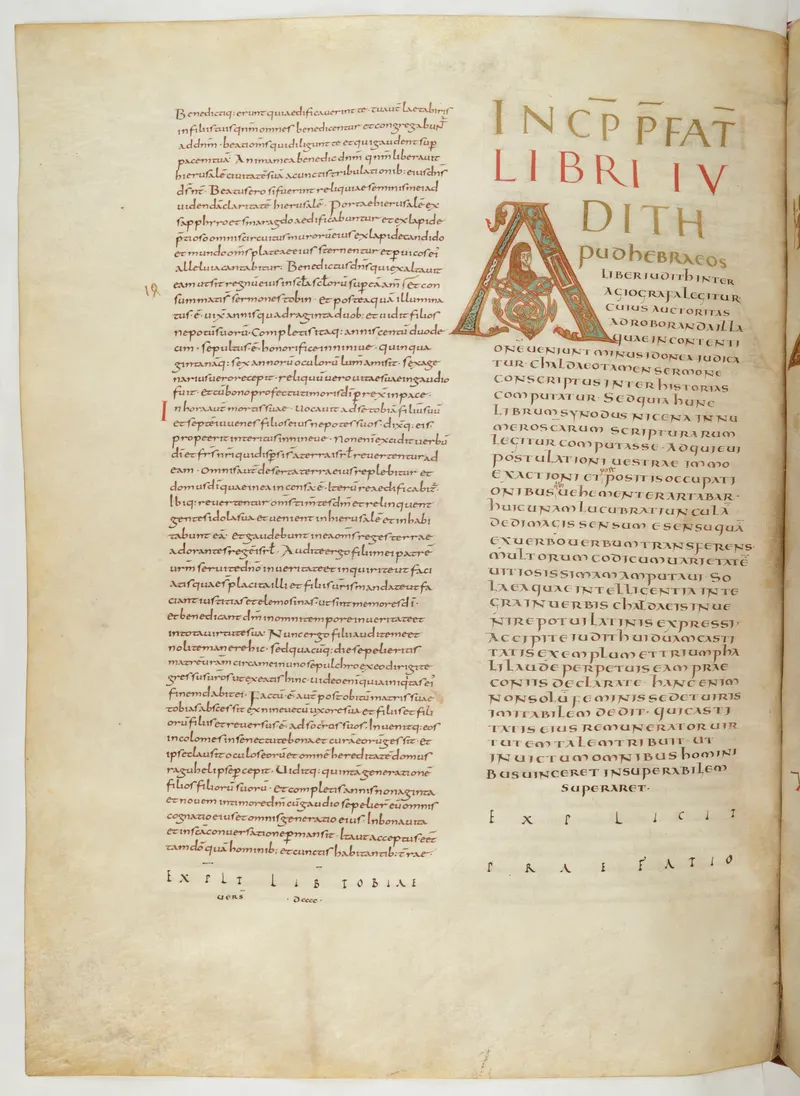 Benedictiq: erunt quiaedificauerint te· tuaut laetaberis
infiliis tuis qnm omnes benedicentur et congregabunt
ad dnm· beati omnes qui diligunt te et qui gaudent sup
pace tua· Anima mea benedic dnm qnm liberauit
hierusale ciuitate sua a cunctis tribulationib: eius dns
ds nr· Beatus ero si fuerint reliquiae seminis mei ad
uidenda claritate hierusale· Portae hierusale ex
sapphiro et smaragdo aedificabuntur et ex lapide
ptioso omnis circuitus muroru eius ex lapide candido
et mundo oms plateae eius sternentur et p uicos ei
alleluia cantabitur· Benedictus dns qui exaltauit
eam ut sit regnu eius in scla scloru sup eam am et con
19
summati st sermones tobin· et postea qua illumina
tus e· uixit annis quadraginta duob: et uidit filios
nepotu suoru· Completis itaq: annis centu duode
cim· sepultus e· honorifice in niniue· quinqua
ginta naq: sex annoru oculoru lum amisit· sexage
narius uero recepit· reliquu uero uitae suae in gaudio
fuit· et cu bono profectu timoris di prex in pace·
In hora aut mortis suae· uocauit ad se tobia filiu suu
et septe iuuenes filios eius nepotes suos· dixitq· eis·
prope erit interitus nineue· Non eni excidit uerbu
di et frs nri qui dispersi st a terra isrl reuertentur ad
eam· omnis aut deserta terra eius replebitur et
domus di quae in ea incensa e· iteru reaedificabit·
Ibiq: reuertentur oms timtes dm et relinquent
gentes idola sua· et uenient in hierusale et inhabi
tabunt ea· et gaudebunt in ea oms reges terrae
adorantes rege isrl· Audite ergo filii mei patre
urm seruite dno in ueritate et inquirite ut faci
atis quae st placita illi et filiis uris mandate ut fa
ciant iustitias et elemosinas· ut sint memores di·
et benedicant dm in omni tempore in ueritate et
in tota uirtute sua· Nunc ergo filii audite me et
nolite manere hic· sed quacuq: die sepelieritis
matre uram circa me in uno sepulchro ex eo dirigite
gressus uros ut exeatis hinc· uideo eni quia iniqtas ei
fine dabit ei· Factu e· aut post obitu matris suae
tobias abscessit ex nineue cu uxore sua et filiis et fili
oru filiis et reuersus e· ad soceros suos· Inuenitq: eos
incolomes in senectute bona et cura eoru gessit· et
ipse clausit oculos eoru et omne hereditate domus
raguheli ipse pcepit· Uiditq: quinta generatione
filios filioru suoru· Et completis annis nonaginta
et nouem in timore dni cu gaudio sepelier eu omnis
cognatio eius et omnis generatio eius· In bona uita
et in sca conuersatione pmansit· Ita ut acceptus eet
tam do qua hominib: et cunctis habitantib: trae·
EXPLT LIB TOBIAE
UERS ·DCCCC·
INCP PFAT
LIBRI IV
DITH
APUD HEBRAEOS
LIBER IUDITH INTER
AGIOGRAFA LEGITUR
CUIUS AUCTORITAS
AD ROBORANDA ILLA
QUAE IN CONTENTI
ONE UENIUNT MINUS IDONEA IUDICA
TUR· CHALDAEO TAMEN SERMONE
CONSCRIPTUS INTER HISTORIAS
COMPUTATUR· SED QUIA HUNC
LIBRUM SYNODUS NICENA IN NU
MERO SCARUM SCRIPTURARUM
LEGITUR COMPUTASSE· ADQUIEUI
POSTULATIONI UESTRAE IMMO
EXACTIONI ET POSITIS OCCUPATI
ONIBUS UEHEMENTER ARTABAR·
HUIC UNAM LUCUBRATIUNCULA
DEDI MAGIS SENSUM E SENSU QUA
EX UERBO UERBUM TRANSFERENS
MULTORUM CODICUM UARIETATE
UITIOSISSIMAM AMPUTAUI· SO
LA EA QUAE INTELLIGENTIA INTE
GRA IN UERBIS CHALDAEIS INUE
NIRE POTUI LATINIS EXPRESSI·
ACCIPITE IUDITH UIDUAM CASTI
TATIS EXEMPLUM ET TRIUMPHA
LI LAUDE PERPETUIS EAM PRAE
CONIIS DECLARATE· HANC ENIM
NON SOLU FEMINIS SED ET UIRIS
IMITABILEM DEDIT· QUI CASTI
TATIS EIUS REMUNERATOR UIR
TUTEM TALEM TRIBUIT· UT
INUICTUM OMNIBUS HOMINI
BUS UINCERET INSUPERABILEM
SUPERARET·
EXPLICIT
PRAEFATIO